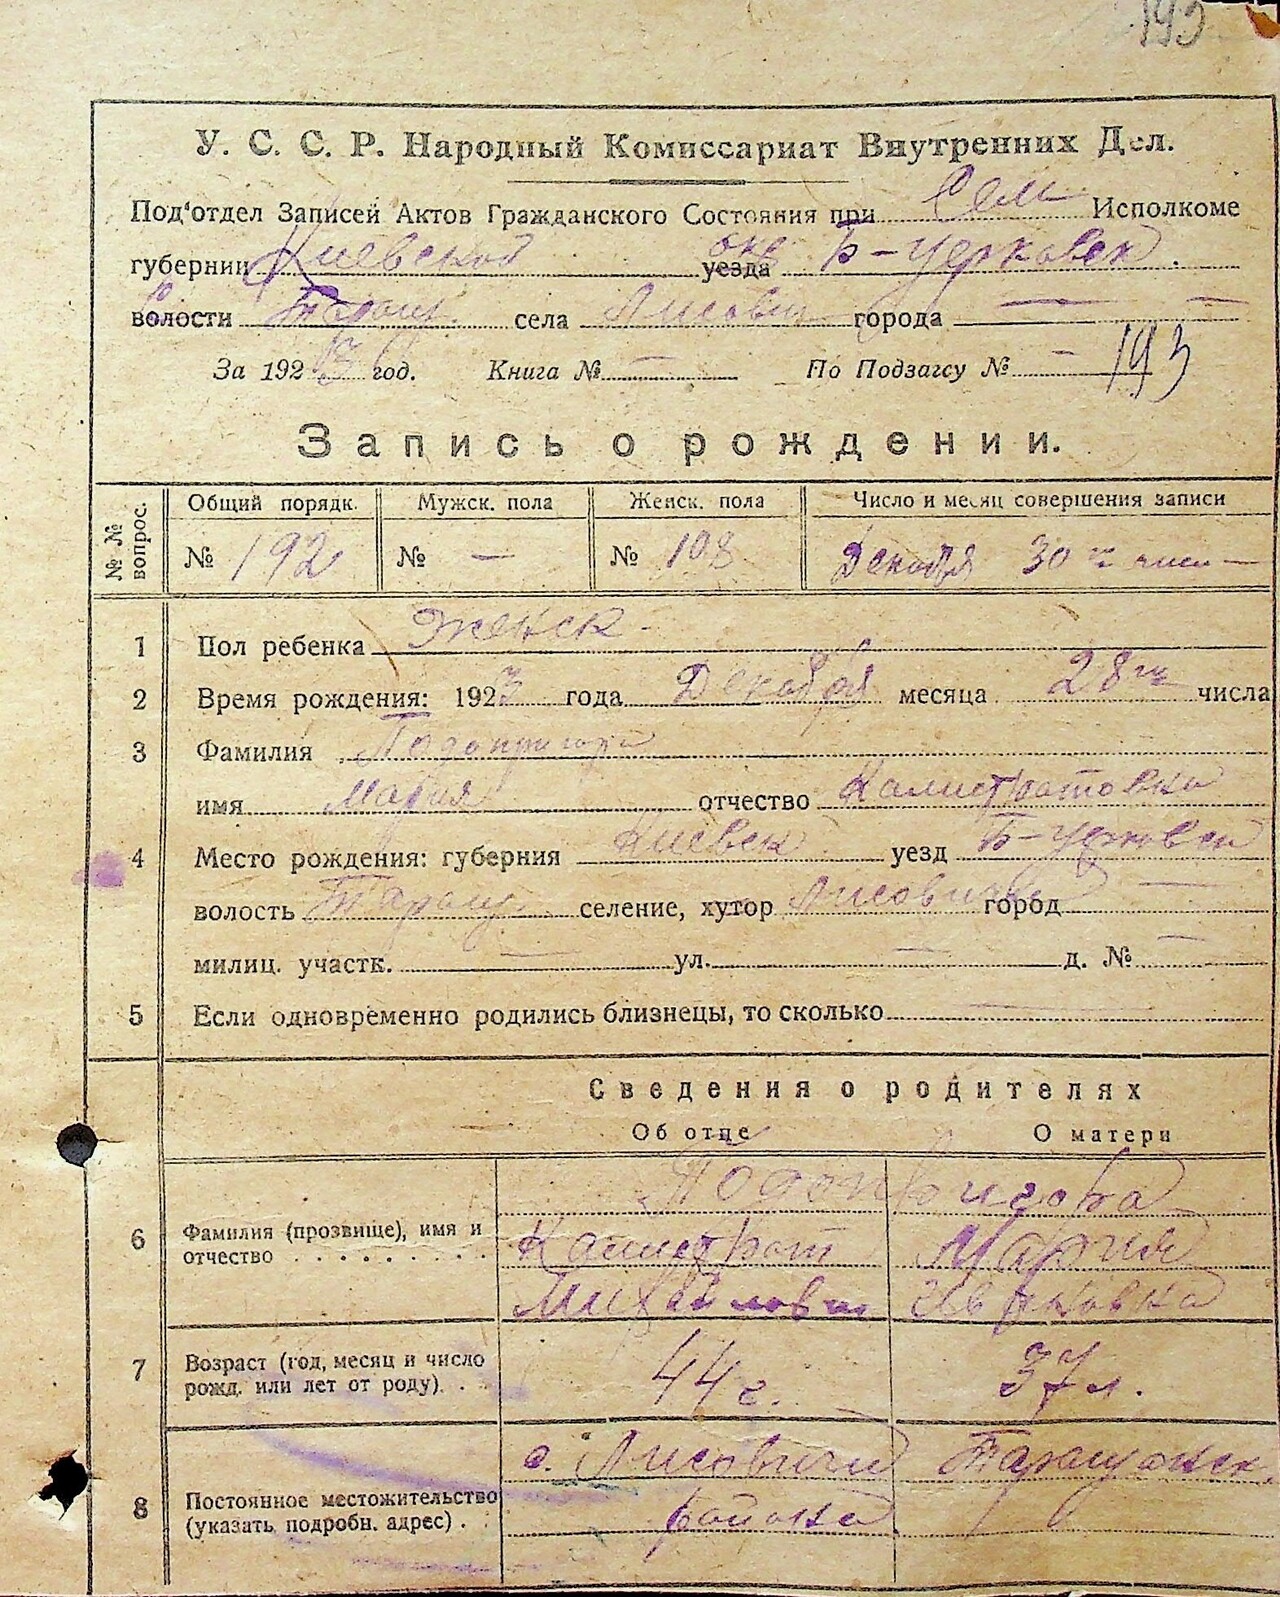 193
У. С. С. Р. Народный Комиссариат Внутренних Дел.
Под'отдел Записей Актов Гражданского Состояния при Сель Исполкоме
губернии Киевской уезда окр Б-Церковск.
волости Таращ. села Лисович города —
За 1923 год. Книга № — По Подзагсу № — 193
Запись о рождении.
№№ вопрос. Общий порядк. Мужск. пола Женск. пола Число и месяц совершения записи
№ 192 № — № 108 Декабря 30го числ —
1 Пол ребенка Женск -
2 Время рождения: 1923 года Декабря месяца 28го числа
3 Фамилия Подопригора
имя Мария отчество Калистратовна
4 Место рождения: губерния Киевск уезд Б-Церковск
волость Таращ. селение, хутор Лисовичи город —
милиц. участк. — ул. — д. № —
5 Если одновременно родились близнецы, то сколько —
Сведения о родителях
Об отце О матери
Подопригора
6 Фамилия (прозвище), имя и Калистрат Мария
отчество . . . . . . . . Михайлович Ивановна
7 Возраст (год, месяц и число
рожд. или лет от роду). . . 44 г. 37 л.
с. Лисовичи Таращанск.
8 Постоянное местожительство района
(указать подробн. адрес) . .